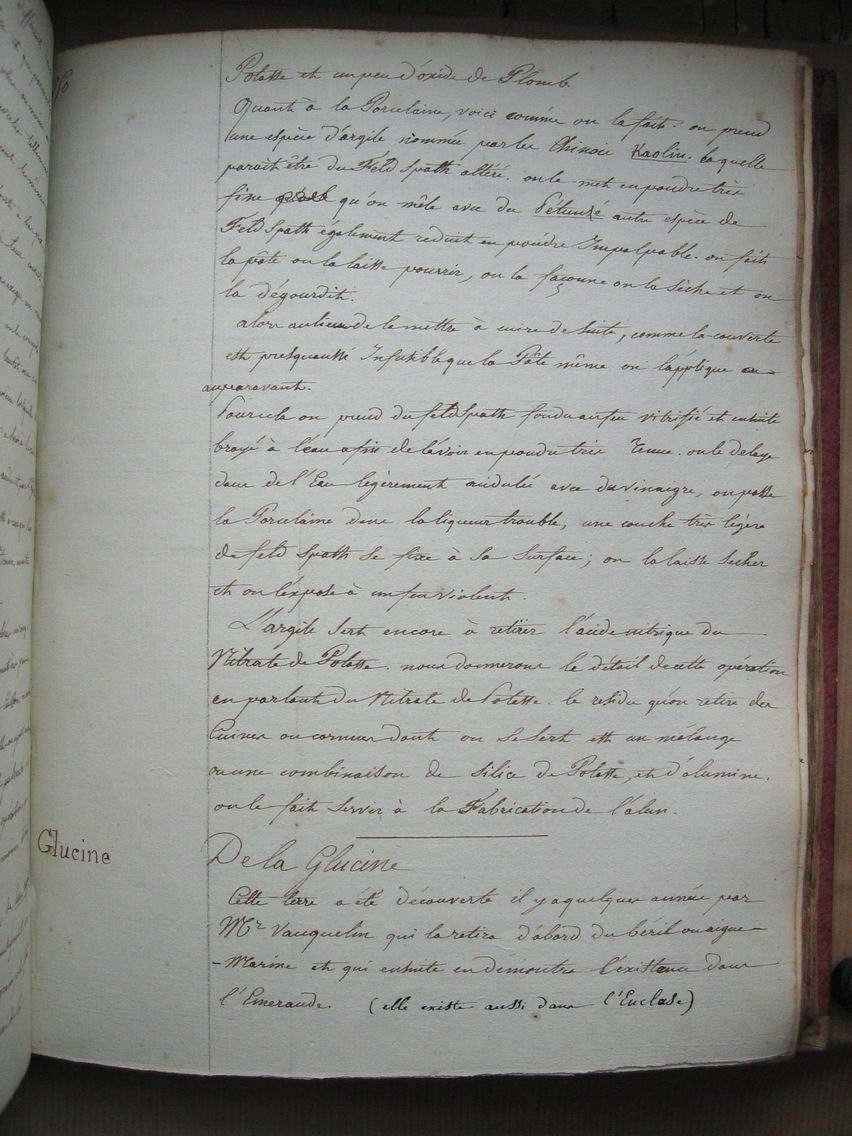 Potasse et un peu d'oxide de Plomb
Quant à la Porcelaine, voici comme on la fait. on prend
une espèce d'argile nommée par les Chinois Kaolin. laquelle
parait être du Feld Spath altéré. on le met en poudre très
fine qu'on mêle avec du Pétunzé autre espèce de
Feld Spath également reduit en poudre Impalpable. on fait
la pâte on la laisse pourrir, on la façonne on la Sèche et on
la dégourdit.
alors au lieu de le mettre à cuire de suite, comme la couverte
est presqu'aussi Infusible que la Pâte même on l'applique au-
auparavant.
Pour cela on prend du feld Spath fondu au feu vitrifié et ensuite
broyé à l'eau afin de l'avoir en poudre très Tenue. on le delaye
dans de l'Eau légèrement acidulée avec du vinaigre, on passe
la Porcelaine dans la liqueur trouble, une couche très légère
de feld Spath se fixe à sa Surface; on la laisse Secher
et on l'expose à un feu violent.
L'argile Sert encore à retirer l'acide nitrique du
Nitrate de Potasse. nous donnerons le détail de cette opération
en parlant du Nitrate de Potasse. le residu qu'on retire des
Cuines ou cornues dont on Se Sert est un mélange
ou une combinaison de Silice de Potasse, et d'alumine.
on le fait Servir à la Fabrication de l'alun.
Glucine
De la Glucine
Cette terre a été découverte il y a quelques années par
Mr Vauquelin qui la retira d'abord du béril ou aigue-
-Marine et qui ensuite en démontra l'existence dans
l'Emeraude. (elle existe aussi dans l'Euclase)